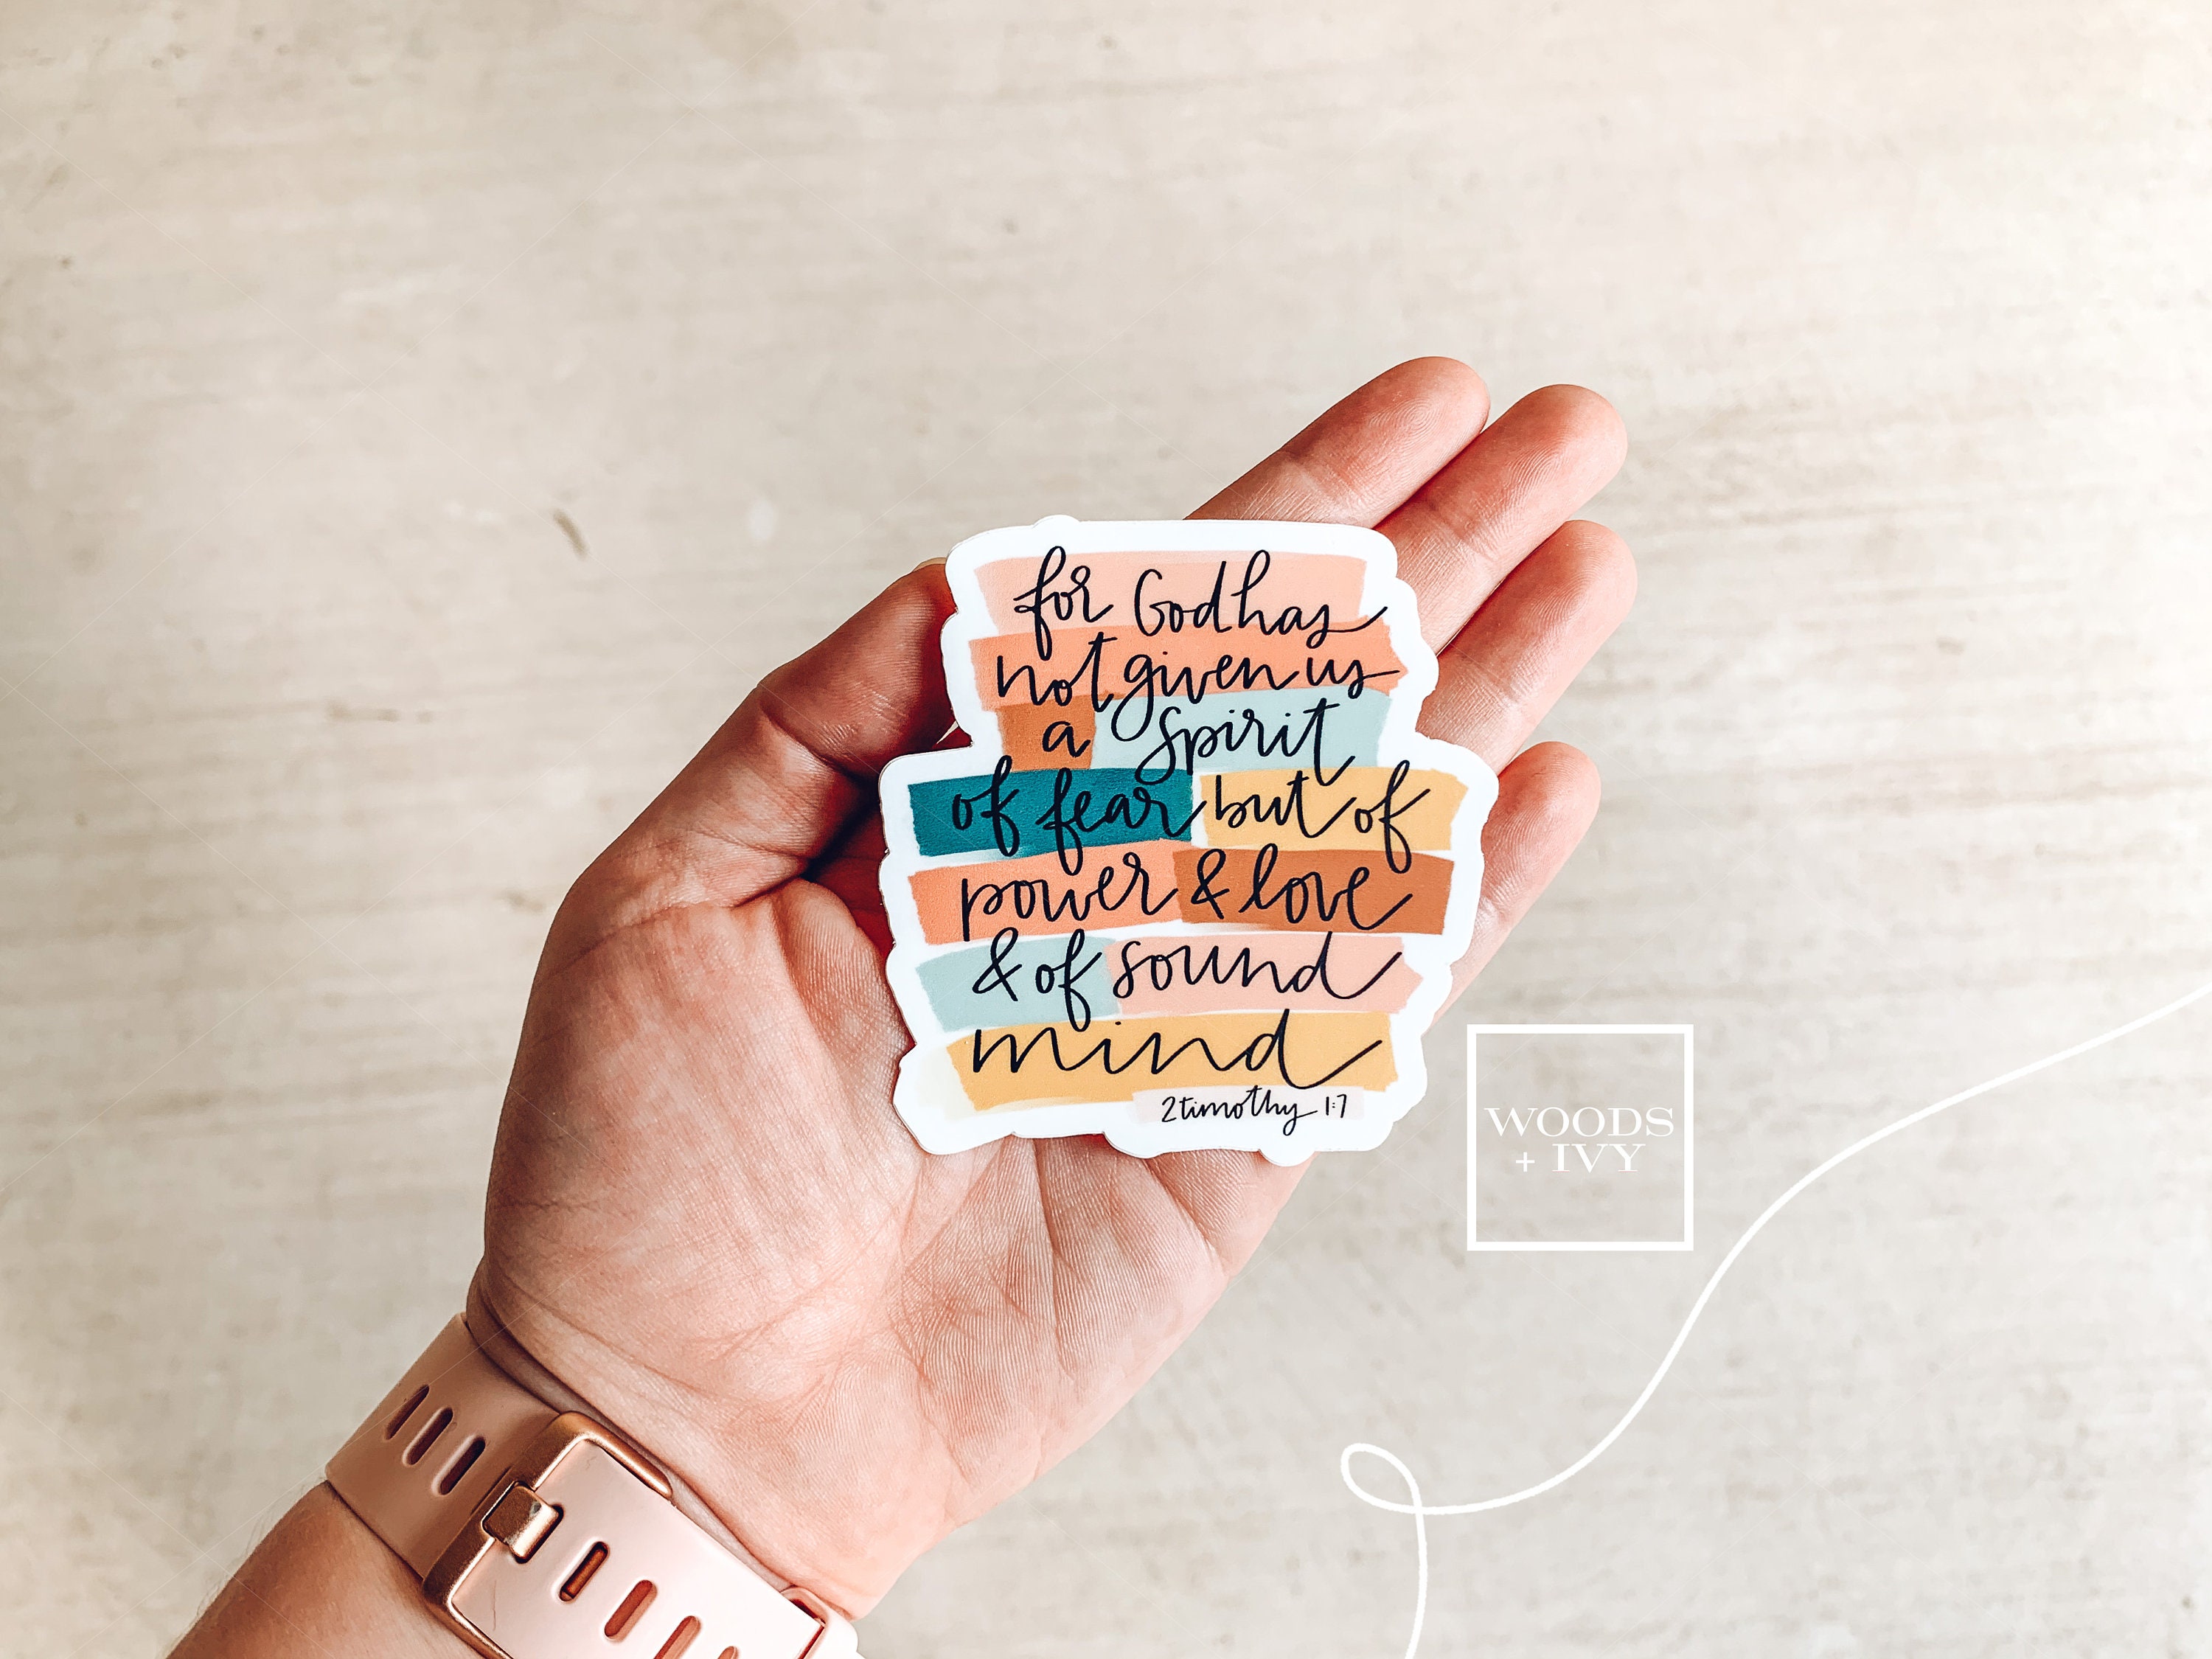 for God has
not given us
a spirit
of fear but of
power & love
& of sound
mind
2 timothy 1:7
WOODS
+ IVY